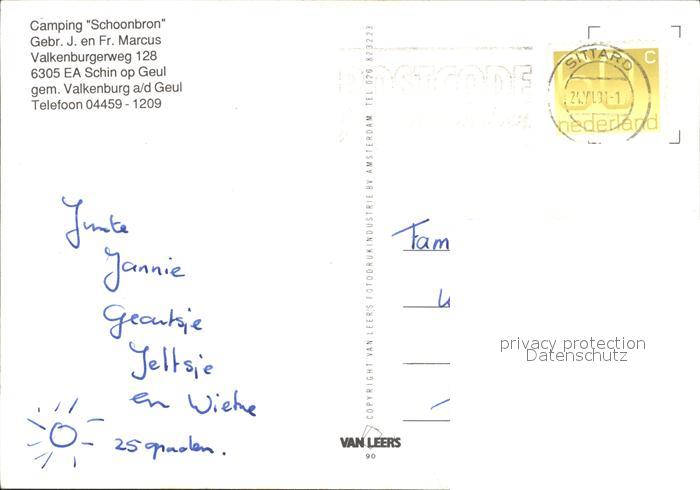 Camping "Schoonbron"
Gebr. J. en Fr. Marcus
Valkenburgerweg 128
6305 EA Schin op Geul
gem. Valkenburg a/d Geul
Telefoon 04459 - 1209
POSTCODE
SITTARD
60 C
nederland
COPYRIGHT VAN LEER'S FOTODRUKINDUSTRIE BV AMSTERDAM TEL 020
Jannie
Geartsje
Jeltsje
en Wietse
25 graden.
Fam
privacy protection
Datenschutz
VAN LEERS
90